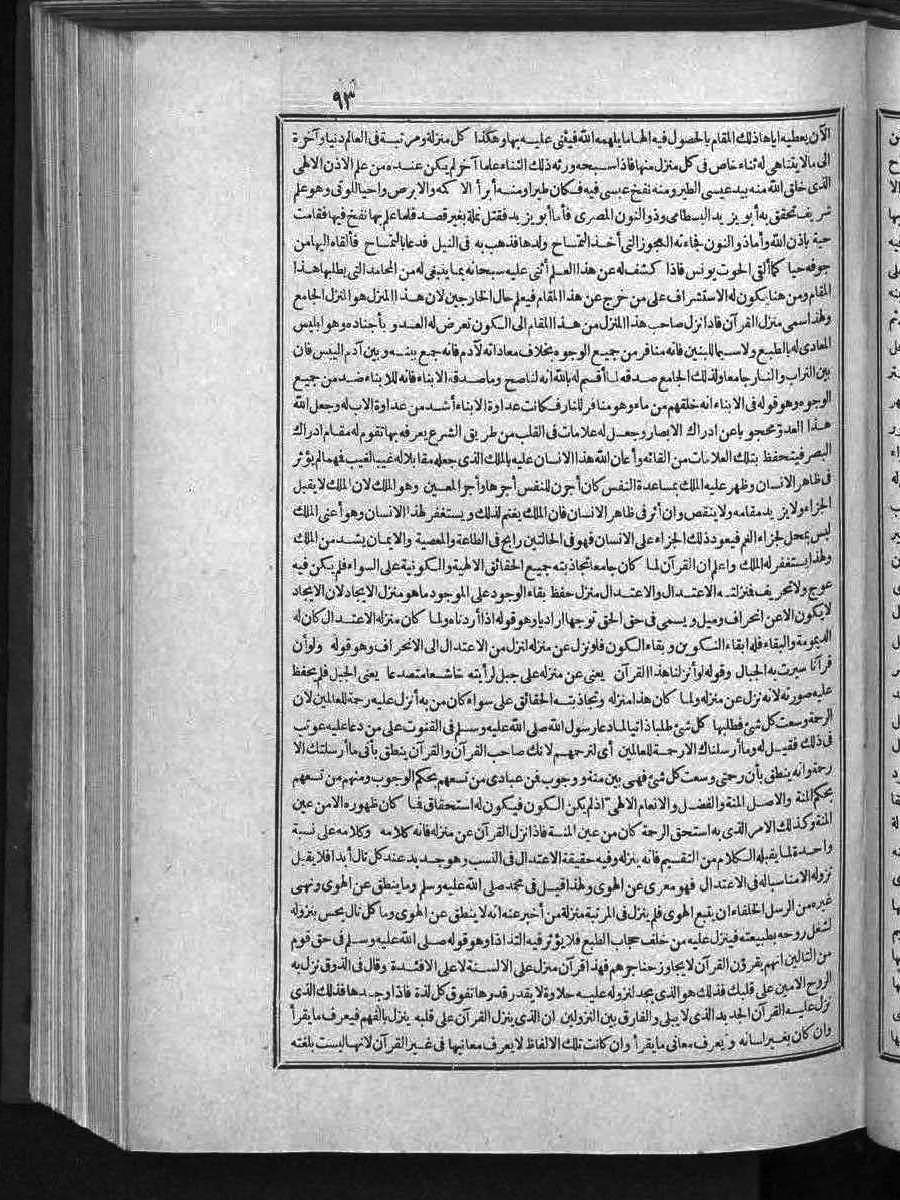 ٩٣
الآن يعطيه اياها ذلك المقام بالحصول فيه الهاما يلهمه الله فيثنى عليه بها وهكذا كل منزلة ومرتبة فى العالم دنيا وآخرة
الى مالا يتناهى له ثناء خاص فى كل منزل منها فاذا سبحه ورثه ذلك الثناء علما آخر لم يكن عنده من علم الاذن الالهى
الذى خلق الله منه بيد عيسى الطير ومنه نفخ عيسى فيه فكان طيرا ومنه أبرأ الاكمه والابرص واحيا الموتى وهو علم
شريف تحقق به أبو يزيد البسطامى وذو النون المصرى فأما أبو يزيد فقتل نملة بغير قصد فلما علم بها نفخ فيها فقامت
حية باذن الله وأما ذو النون فجاءته العجوز التى أخذ التمساح ولدها فذهب به فى النيل فدعا بالتمساح فألقاه اليها من
جوفه حيا كما ألقى الحوت يونس فاذا كشف له عن هذا العلم أثنى عليه سبحانه بما ينبغى له من المحامد التى يطلبها هذا
المقام ومن هنا يكون له الاستشراف على من خرج عن هذا المقام فيعلم حال الخارجين لان هذا المنزل هو المنزل الجامع
ولهذا سمى منزل القرآن فاذا نزل صاحب هذا المنزل من هذا المقام الى الكون تعرض له العدو بأجناده وهو ابليس
المعادى له بالطبع ولا سيما للبنين فانه منافر من جميع الوجوه بخلاف معاداته لآدم فانه جمع بينه وبين آدم اليبس فان
بين التراب والنار جامعا ولذلك الجامع صدقه لما أقسم له بالله انه لناصح وما صدقه الابناء فانه للابناء ضد من جميع
الوجوه وهو قوله فى الابناء انه خلقهم من ماء وهو منافر للنار فكانت عداوة الابناء أشد من عداوة الاب له وجعل الله
هذا العدو محجوبا عن ادراك الابصار وجعل له علامات فى القلب من طريق الشرع يعرفه بها تقوم له مقام ادراك
البصر فيتحفظ بتلك العلامات من القائه وأعان الله هذا الانسان عليه بالملك الذى جعله مقابلا له غيبا لغيب فمهما لم يؤثر
فى ظاهر الانسان وظهر عليه الملك بمساعدة النفس كان أجرين للنفس أجرها وأجر المعين وهو الملك لان الملك لا يقبل
الجزاء ولا يزيد مقامه ولا ينقص وان أثر فى ظاهر الانسان فان الملك يغتم لذلك ويستغفر لهذا الانسان وهو أعنى الملك
ليس بمحل لجزاء الغم فيعود ذلك الجزاء على الانسان فهو فى الحالتين رابح فى الطاعة والمعصية والايمان يشد من الملك
ولهذا يستغفر له الملك واعلم ان القرآن لما كان جامعا تجاذبته جميع الحقائق الالهية والكونية على السواء فلم يكن فيه
عوج ولا تحريف فنزلته الاعتدال والاعتدال منزل حفظ بقاء الوجود على الموجود ما هو منزل الايجاد لان الايجاد
لا يكون الا عن انحراف وميل ويسمى فى حق الحق توجها اراديا وهو قوله اذا أردناه ولما كان منزله الاعتدال كان له
الديمومة والبقاء فله ابقاء التكوين وبقاء الكون فلو نزل عن منزله لنزل من الاعتدال الى الانحراف وهو قوله ولو أن
قرآنا سيرت به الجبال وقوله لو أنزلنا هذا القرآن يعنى عن منزله على جبل لرأيته خاشعا متصدعا يعنى الجبل فلم يحفظ
عليه صورته لانه نزل عن منزله ولما كان هذا منزله وتجاذبته الحقائق على سواء كان من به أنزل عليه رحمة للعالمين لان
الرحمة وسعت كل شئ فطلبها كل شئ طلبا ذاتيا لما دعا رسول الله صلى الله عليه وسلم فى القنوت على من دعا عليه عوتب
فى ذلك فقيل له وما أرسلناك الا رحمة للعالمين أى لترحمهم لانك صاحب القرآن والقرآن ينطق بأنى ما أرسلتك الا
رحمة وانه ينطق بأن رحمتى وسعت كل شئ فهى بين منة ووجوب فمن عبادى من تسعهم بحكم الوجوب ومنهم من تسعهم
بحكم المنة والاصل المنة والفضل والانعام الالهى اذ لم يكن الكون فيكون له استحقاق فما كان ظهوره الا من عين
المنة وكذلك الامر الذى به استحق الرحمة كان من عين المنة فاذا نزل القرآن عن منزله فانه كلامه وكلامه على نسبة
واحدة لما يقبله الكلام من التقسيم فانه ينزله وفيه حقيقة الاعتدال فى النسب وهو جديد عند كل تال أبدا فلا يقبل
نزوله الا مناسبا له فى الاعتدال فهو معرى عن الهوى ولهذا قيل فى محمد صلى الله عليه وسلم وما ينطق عن الهوى ونهى
غيره من الرسل الخلفاء ان يتبع الهوى فلم ينزل فى المرتبة منزلة من أخبر عنه انه لا ينطق عن الهوى وما كل تال يحس بنزوله
لشغل روحه بطبيعته فينزل عليه من خلف حجاب الطبع فلا يؤثر فيه التذاذا وهو قوله صلى الله عليه وسلم فى حق قوم
من التالين انهم يقرؤن القرآن لا يجاوز حناجرهم فهذا قرآن منزل على الالسنة لا على الافئدة وقال فى الذوق نزل به
الروح الامين على قلبك فذلك هو الذى يجد لنزوله عليه حلاوة لا يقدر قدرها تفوق كل لذة فاذا وجدها فذلك الذى
نزل عليه القرآن الجديد الذى لا يبلى والفارق بين النزولين ان الذى ينزل القرآن على قلبه ينزل بالفهم فيعرف ما يقرأ
وان كان بغير لسانه ويعرف معانى ما يقرأ وان كانت تلك الالفاظ لا يعرف معانيها فى غير القرآن لانها ليست بلغته